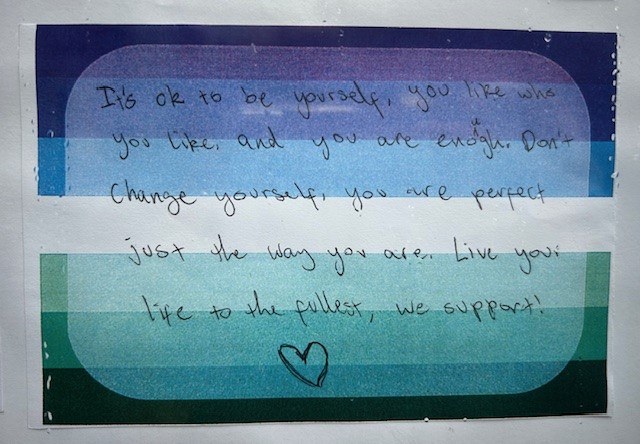 It's ok to be yourself, you like who
you like, and you are enough. Don't
change yourself, you are perfect
just the way you are. Live your
life to the fullest, we support!